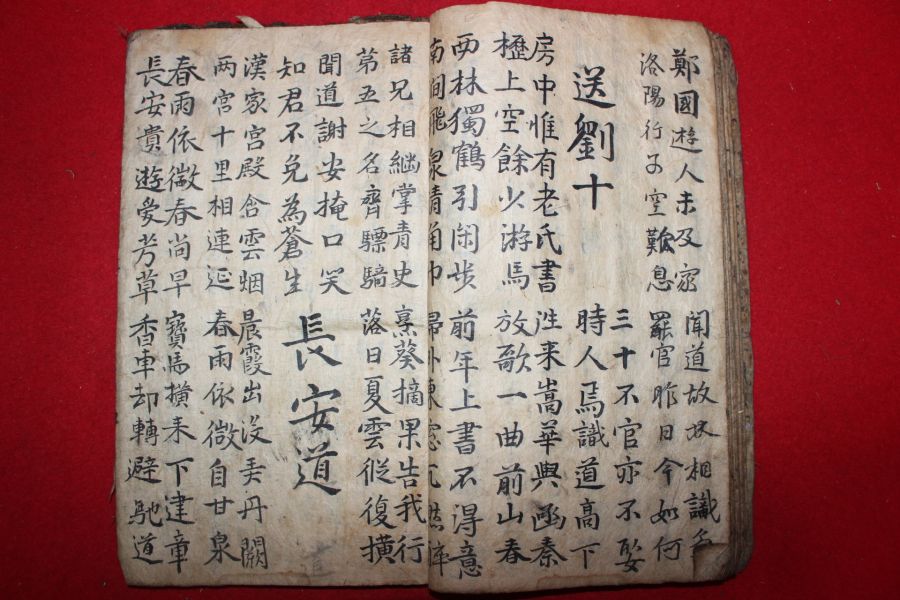 鄭國遊人未及家 聞道故林相識多
洛陽行子空歎息 罷官昨日今如何
送劉十
三十不官亦不娶
時人焉識道高下
房中惟有老氏書 往來嵩華與函秦
櫪上空餘少游馬 放歌一曲前山春
西林獨鶴引閑步 前年上書不得意
南澗飛泉清角巾 歸卧東窓兀然醉
諸兄相繼掌青史 烹葵摘果告我行
第五之名齊驃騎 落日夏雲縱復橫
聞道謝安掩口笑
知君不免為蒼生
長安道
漢家宮殿含雲烟 晨霞出沒弄丹闕
两宮十里相連延 春雨依微自甘泉
春雨依微春尚早 寶馬橫来下建章
長安貴遊愛芳草 香車却轉避馳道